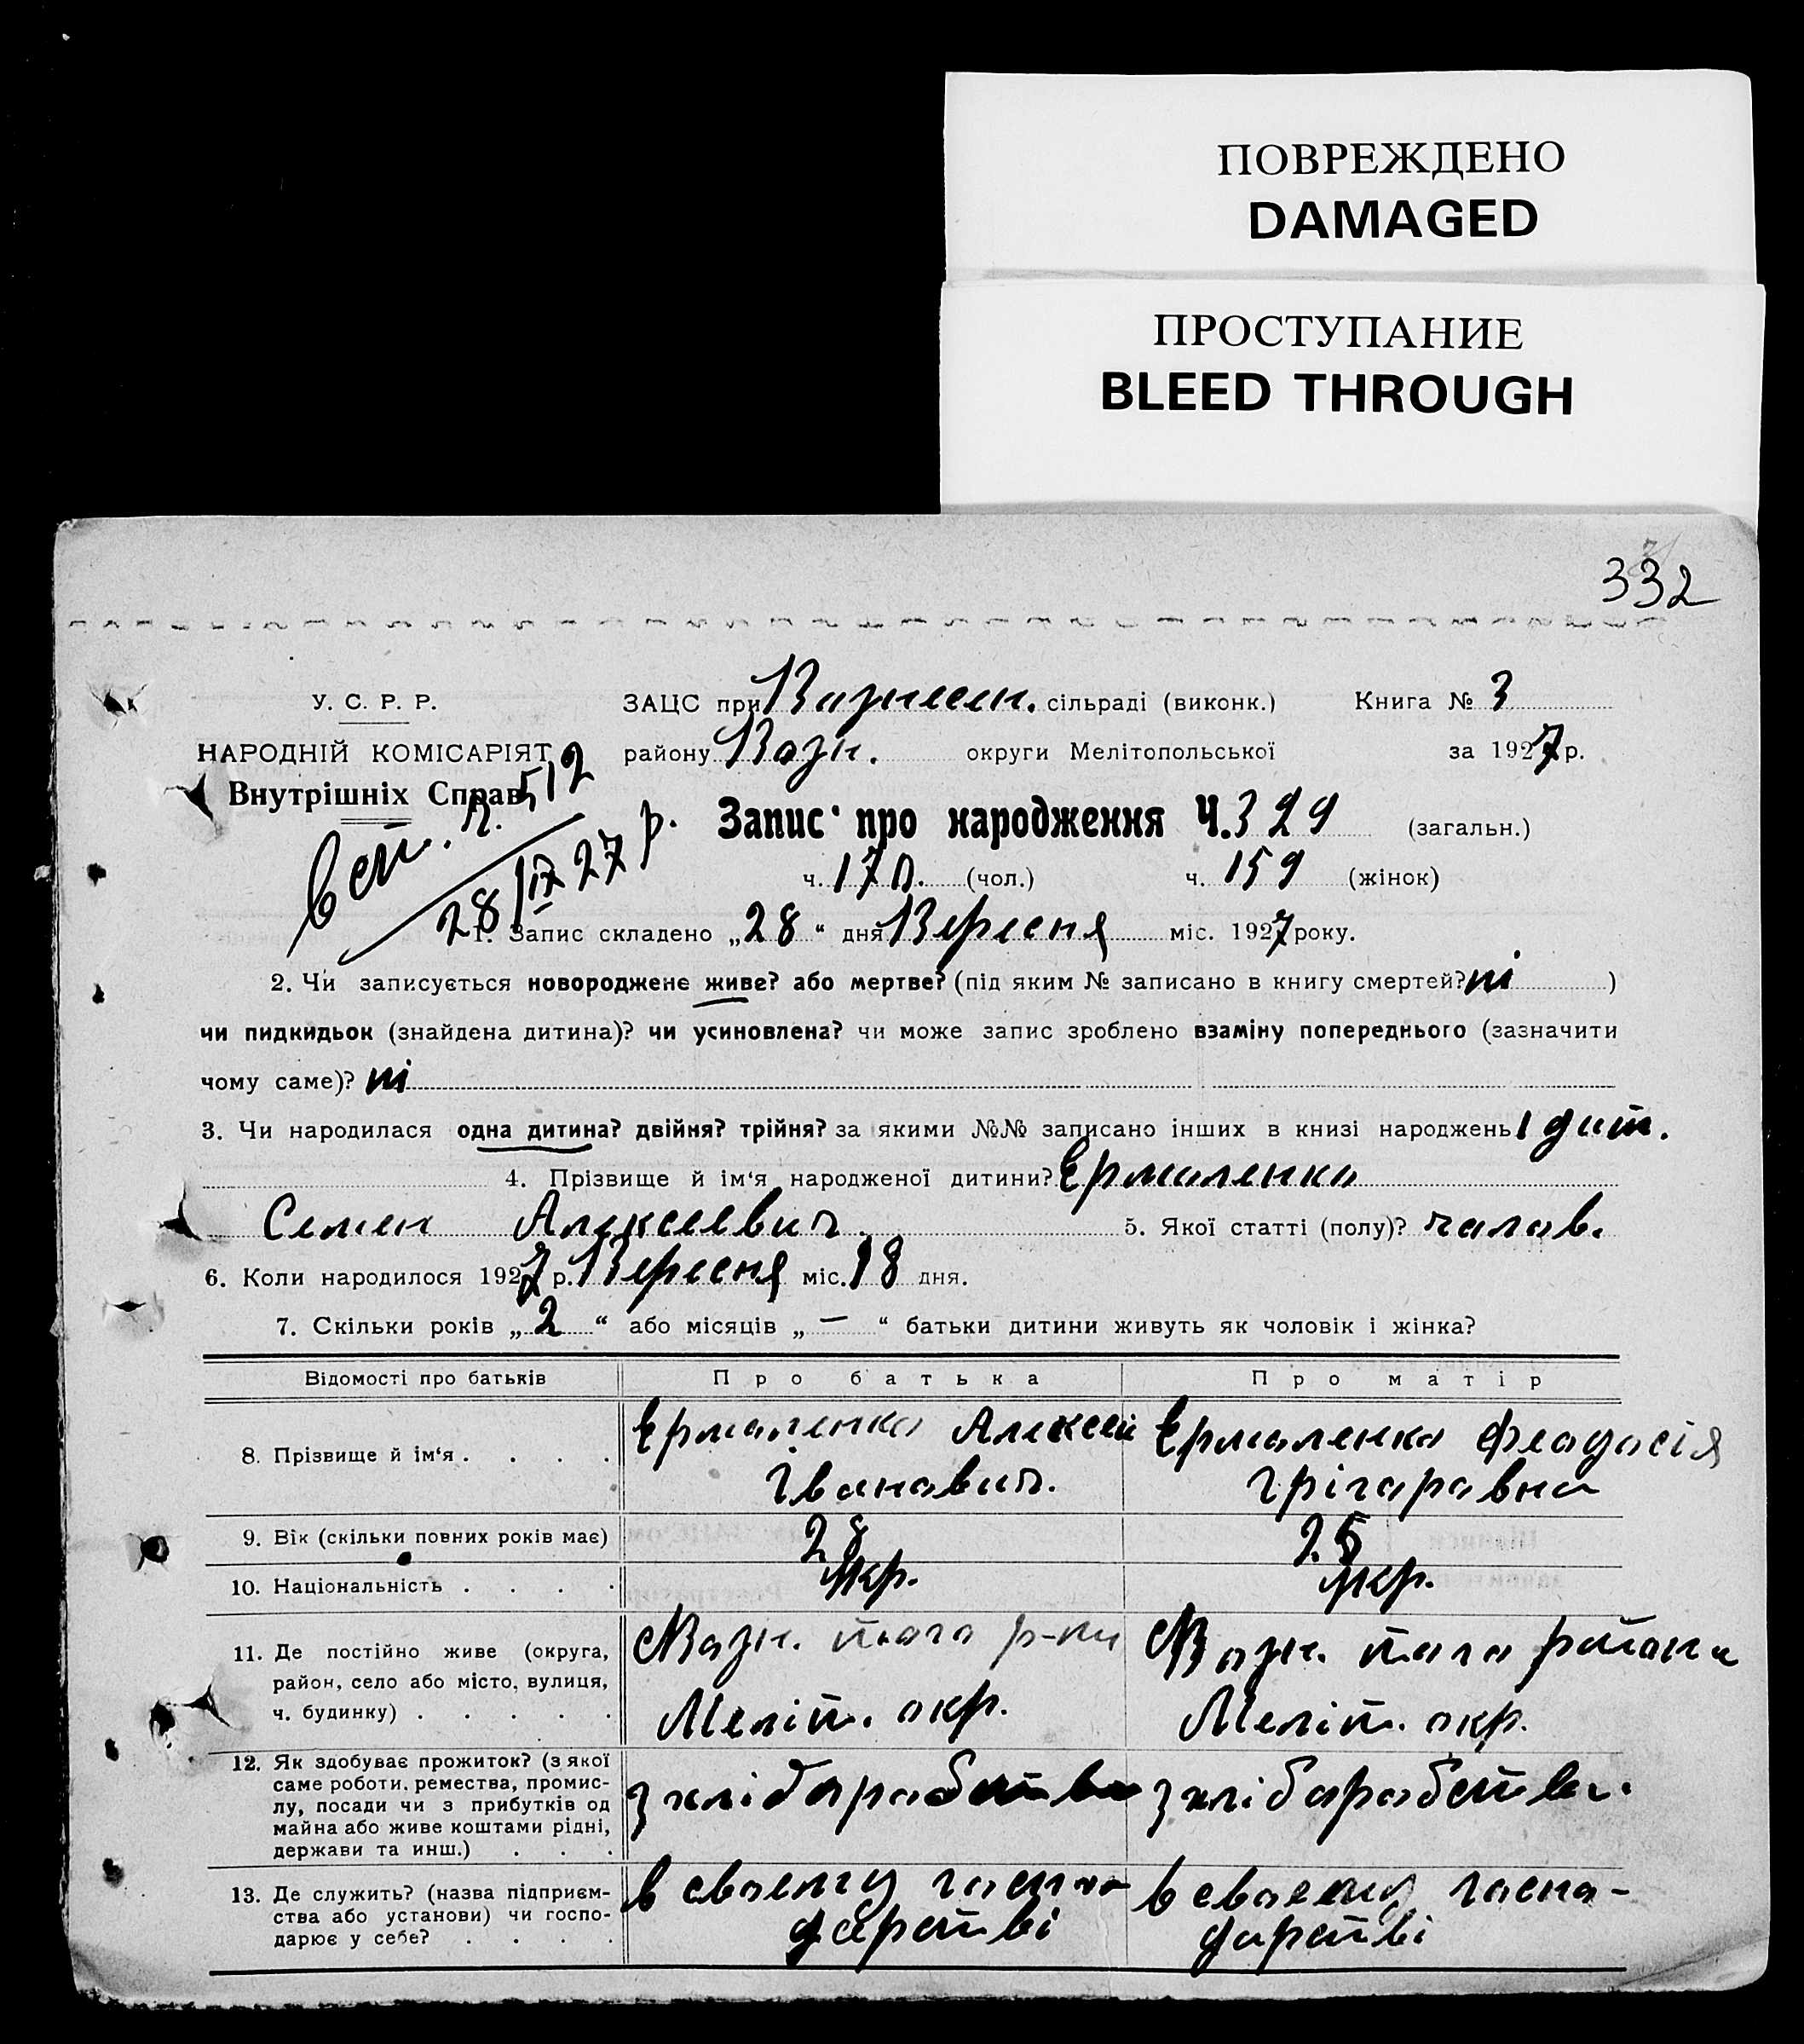 ПОВРЕЖДЕНО
DAMAGED
ПРОСТУПАНИЕ
BLEED THROUGH
332
У. С. Р. Р.
НАРОДНІЙ КОМІСАРІЯТ
Внутрішніх Справ
512
28/IX 27 р.
ЗАЦС при Вазнесен. сільраді (виконк.) Книга № 3
району Вазн. округи Мелітопольської за 1927 р.
Запис про народження Ч. 329 (загальн.)
ч. 170. (чол.) ч. 159 (жінок)
1. Запис складено „28“ дня Вересня міс. 1927 року.
2. Чи записується новороджене живе? або мертве? (під яким № записано в книгу смертей? ні )
чи пидкидьок (знайдена дитина)? чи усиновлена? чи може запис зроблено взаміну попереднього (зазначити
чому саме)? ні
3. Чи народилася одна дитина? двійня? трійня? за якими №№ записано інших в книзі народжень 1 дит.
4. Прізвище й ім‘я народженої дитини? Ермоленко
Семен Алексеевич. 5. Якої статті (полу)? чалов.
6. Коли народилося 1927 р. Вересня міс. 18 дня.
7. Скільки років „2“ або місяців „—“ батьки дитини живуть як чоловік і жінка?
Відомості про батьків Про батька Про матір
8. Прізвище й ім‘я . . . . Ермоленко Алексей Ермоленко Феадасія
Іванович. Грігаравна
9. Вік (скільки повних років має) 28 25
10. Національність . . . . Укр. Укр.
11. Де постійно живе (округа, Вазн. того р-ну Вазн. того района
район, село або місто, вулиця,
ч. будинку) . . . . . Меліт. окр. Меліт. окр.
12. Як здобуває прожиток? (з якої
саме роботи, ремества, промис-
лу, посади чи з прибутків од з хлібаробства з хлібаробства.
майна або живе коштами рідні,
держави та инш.) . . .
13. Де служить? (назва підприєм- в своєму госпо- в своєму госпо-
ства або установи) чи госпо- дарстві дарстві
дарює у себе? . . . .